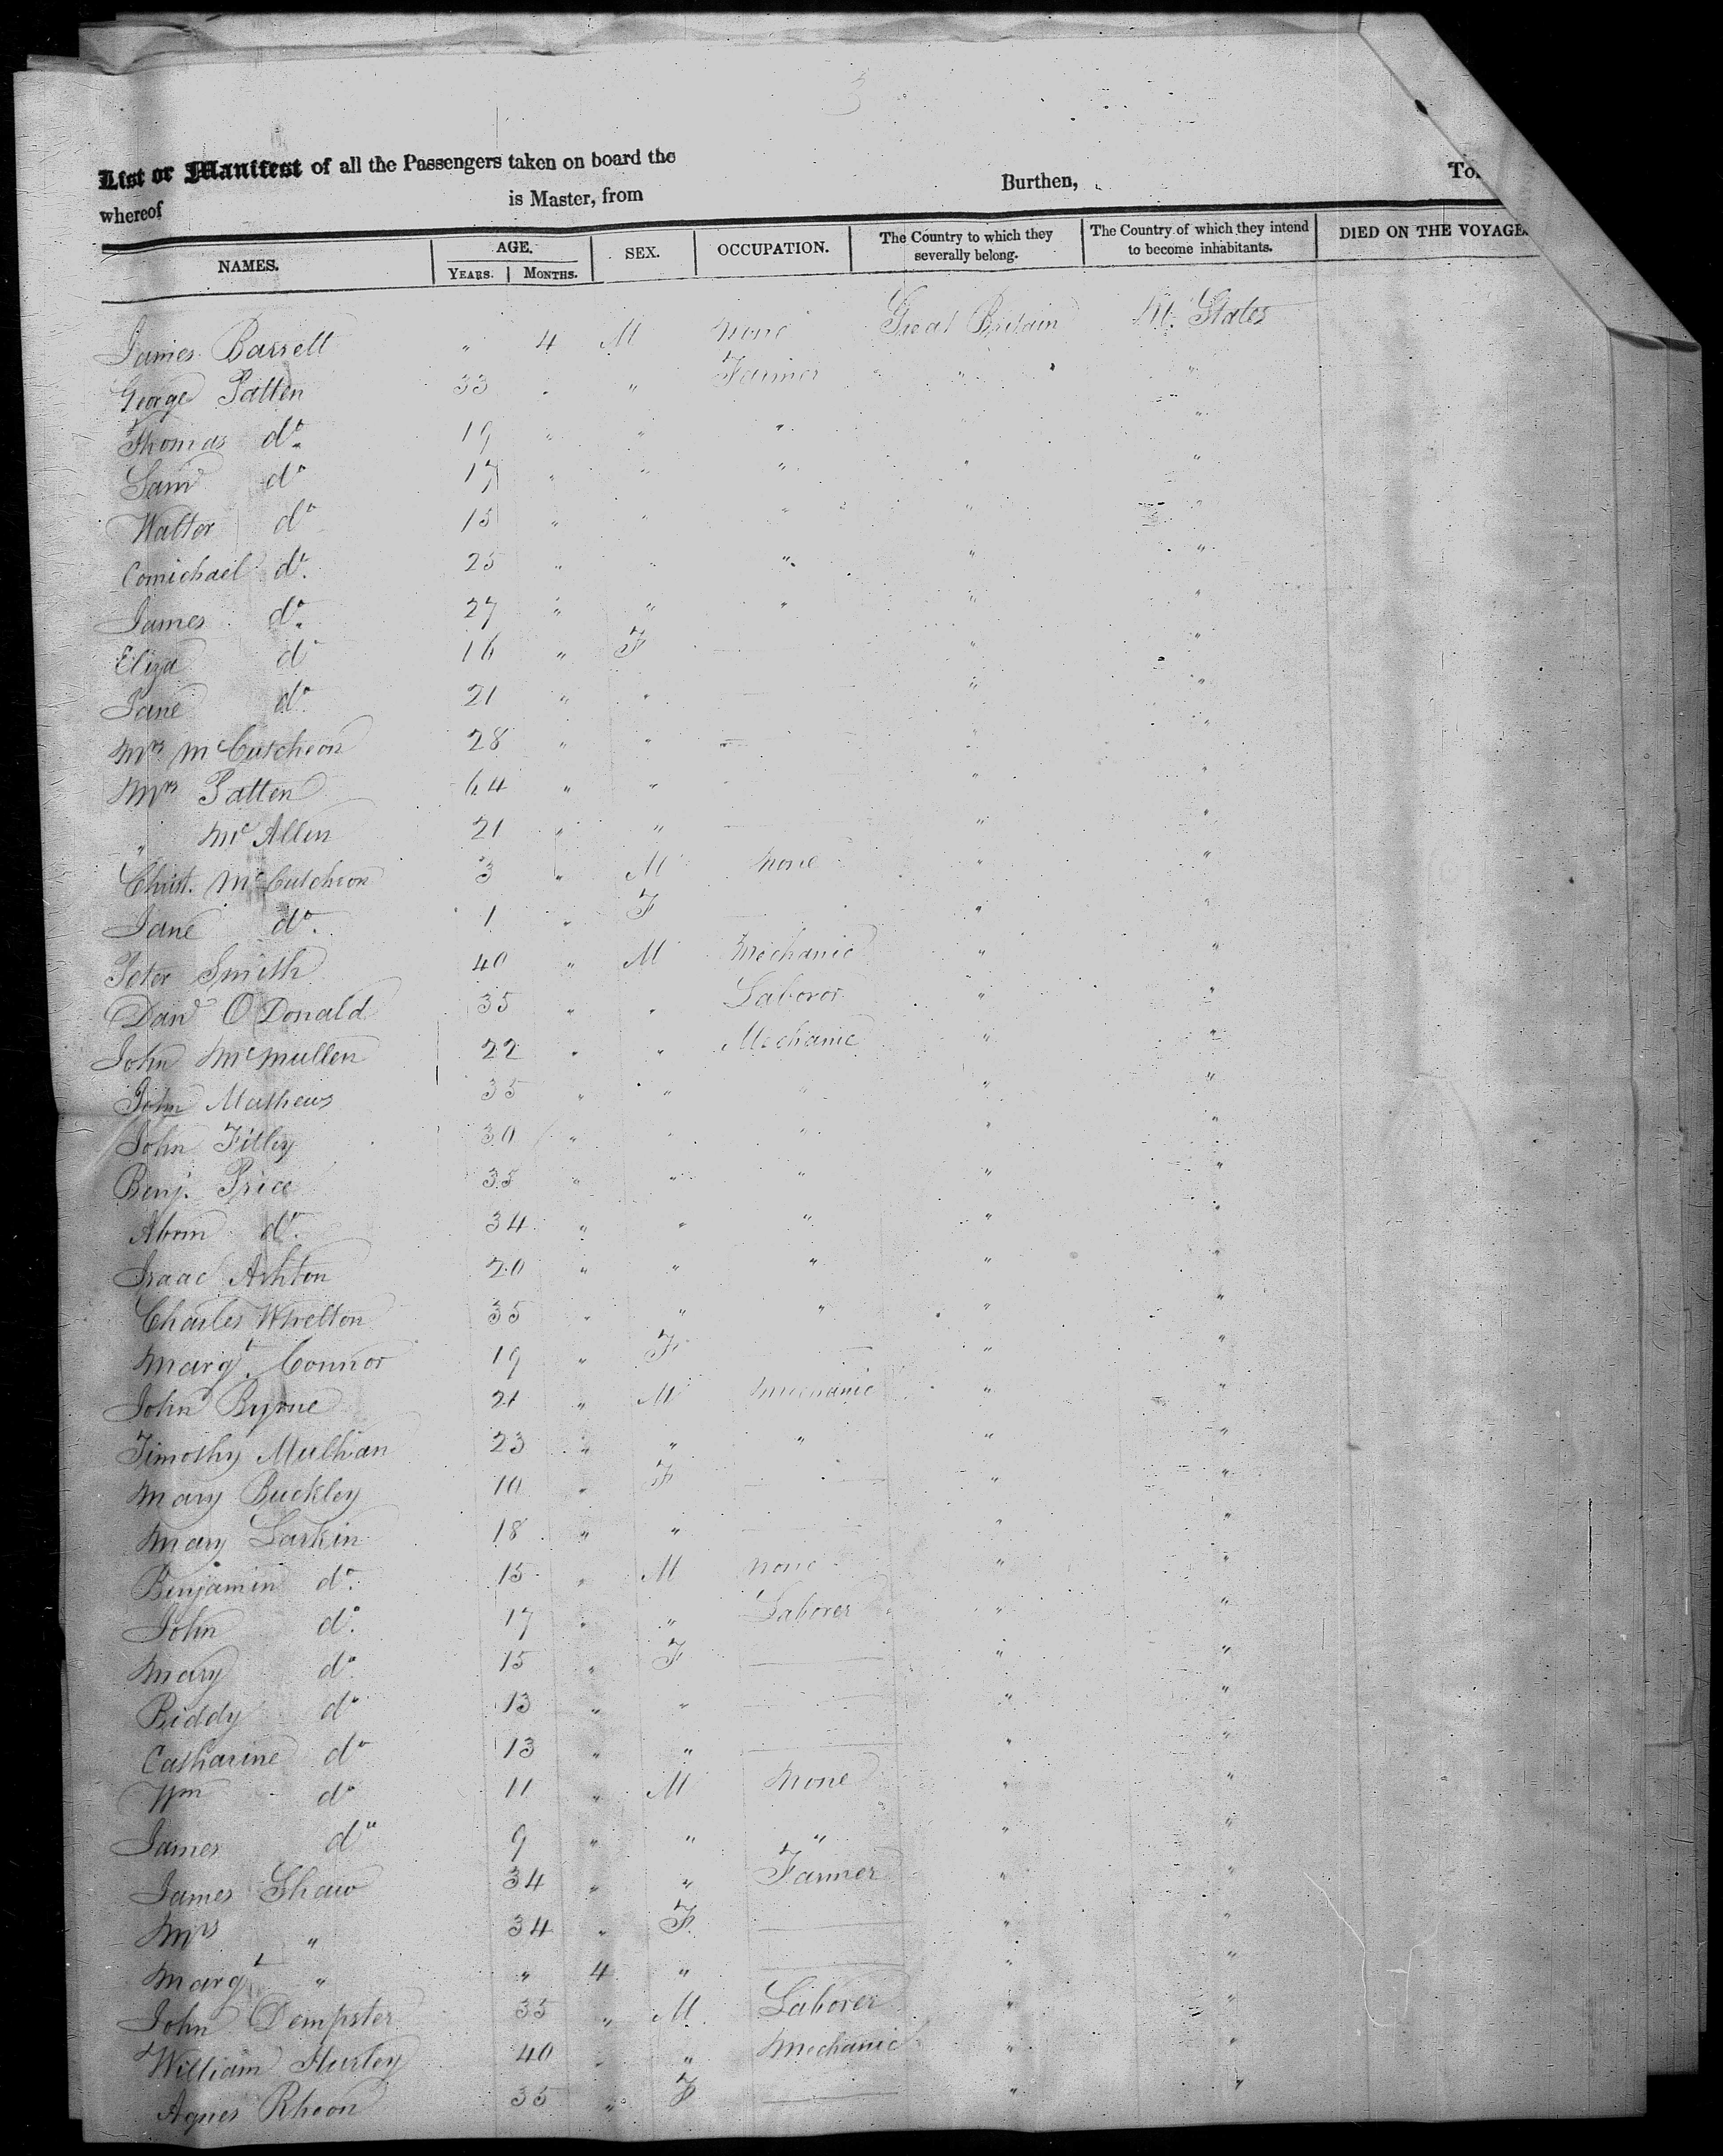 3
List or Manifest of all the Passengers taken on board the
whereof is Master, from Burthen, To
NAMES. AGE. YEARS. MONTHS. SEX. OCCUPATION. The Country to which they severally belong. The Country of which they intend to become inhabitants. DIED ON THE VOYAGE.
James Barrett " 4 M none Great Britain U. States
George Patten 33 " " Farmer " "
Thomas do 19 " " " "
Saml do 17 " " " " "
Walter do 15 " " " " "
Comichael do 25 " " " " "
James do 27 " " " " "
Eliza do 16 " F " "
Jane do 21 " " " "
Mrs McCutcheon 28 " " " "
Mrs Patten 64 " " " "
" McAllen 21 " " " "
Christ. McCutcheon 3 " M none " "
Jane do 1 " F " "
Peter Smith 40 " M Mechanic " "
Danl O'Donald 35 " " Laboror " "
John McMullen 22 " " Mechanic " "
John Mathews 35 " " " " "
John Filley 30 " " " " "
Benj. Price 35 " " " " "
Abrm do 34 " " " " "
Isaac Ashton 20 " " " " "
Charles Whelton 35 " " " " "
Margt. Connor 19 " F " "
John Byrne 21 " M Mechanic " "
Timothy Mulhan 23 " " " " "
Mary Buckley 10 " F " "
Mary Larkin 18 " " " "
Benjamin do 15 " M none " "
John do 17 " " Laborer " "
Mary do 15 " F " "
Biddy do 13 " " " "
Catharine do 13 " " " "
Wm do 11 " M None " "
James do 9 " " " " "
James Shaw 34 " " Farmer " "
Mrs " 34 " F " "
Margt " " 4 " " "
John Dempster 35 " M Laborer " "
William Hurley 40 " " Mechanic " "
Agnes Rheon 35 " F " "